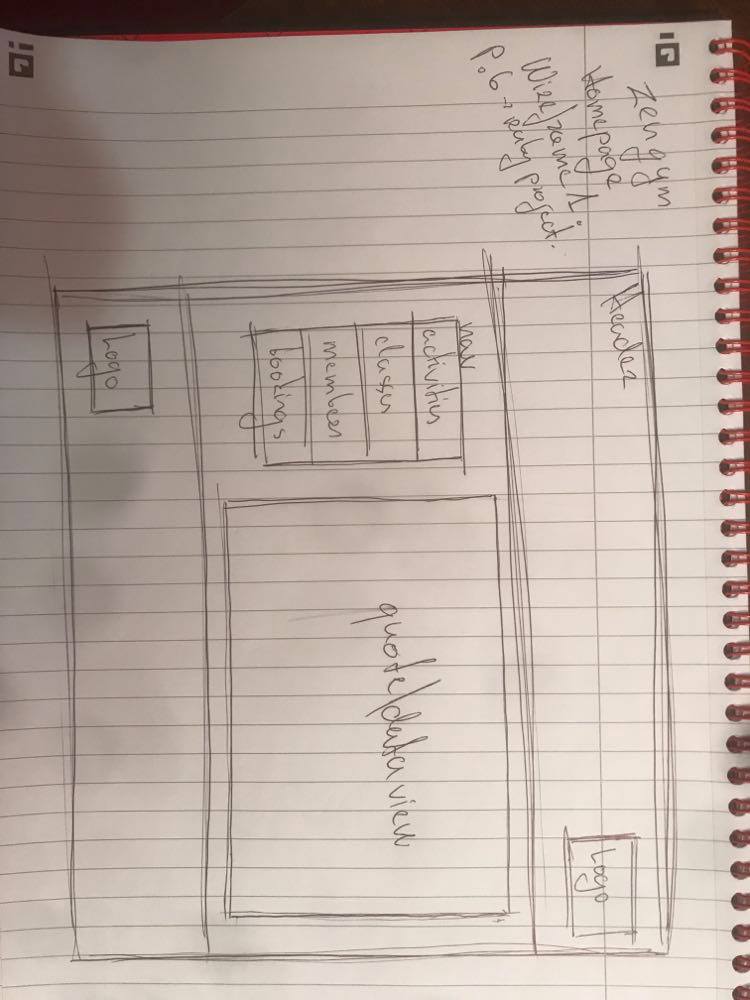 Zen gym
Homepage
Wireframe 1:
P.6 → Ruby project.
Header
Logo
nav
activities
classes
members
bookings
quote/data view
Logo